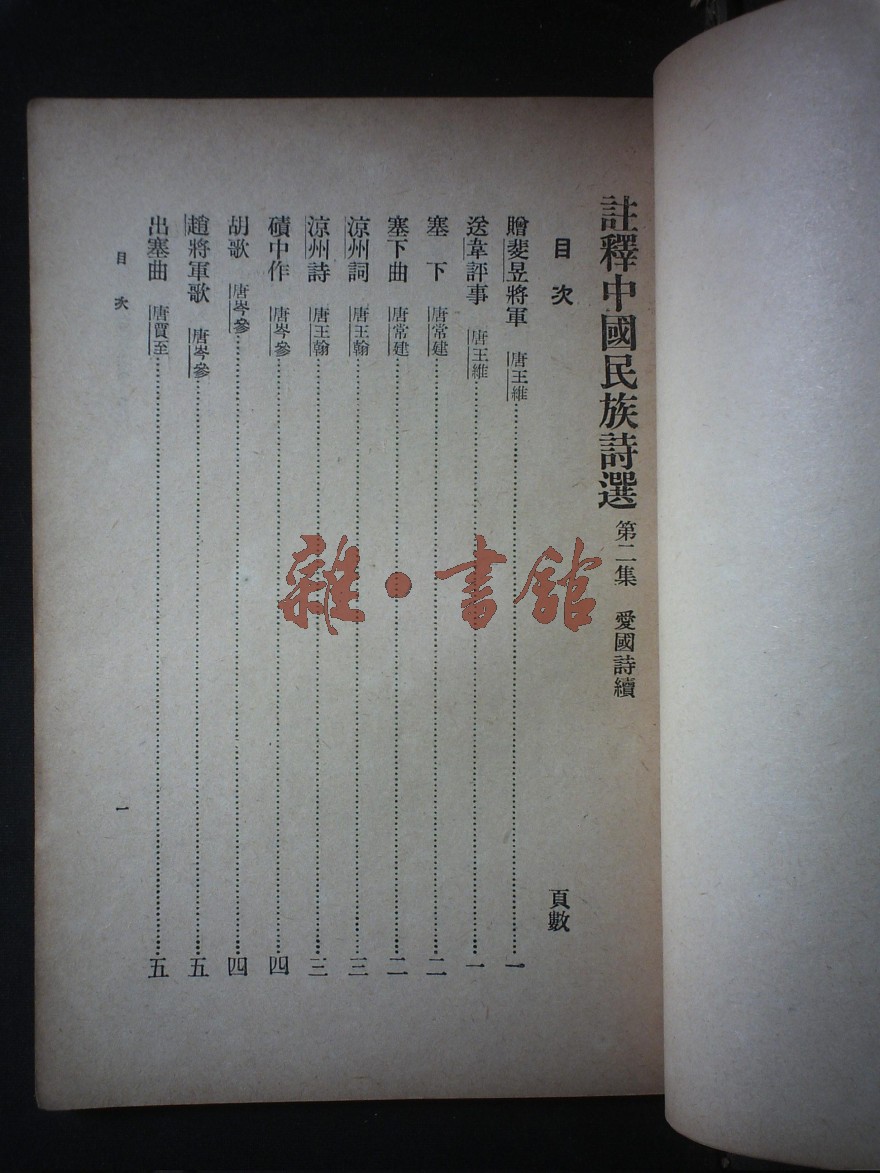 註釋中國民族詩選 第二集 愛國詩續
目次 頁數
贈斐昱將軍 唐王維 一
送韋評事 唐王維 一
塞下 唐常建 二
塞下曲 唐常建 二
涼州詞 唐王翰 三
涼州詩 唐王翰 三
磧中作 唐岑參 四
胡歌 唐岑參 四
趙將軍歌 唐岑參 五
出塞曲 唐賈至 五
目次 一
雜·書館